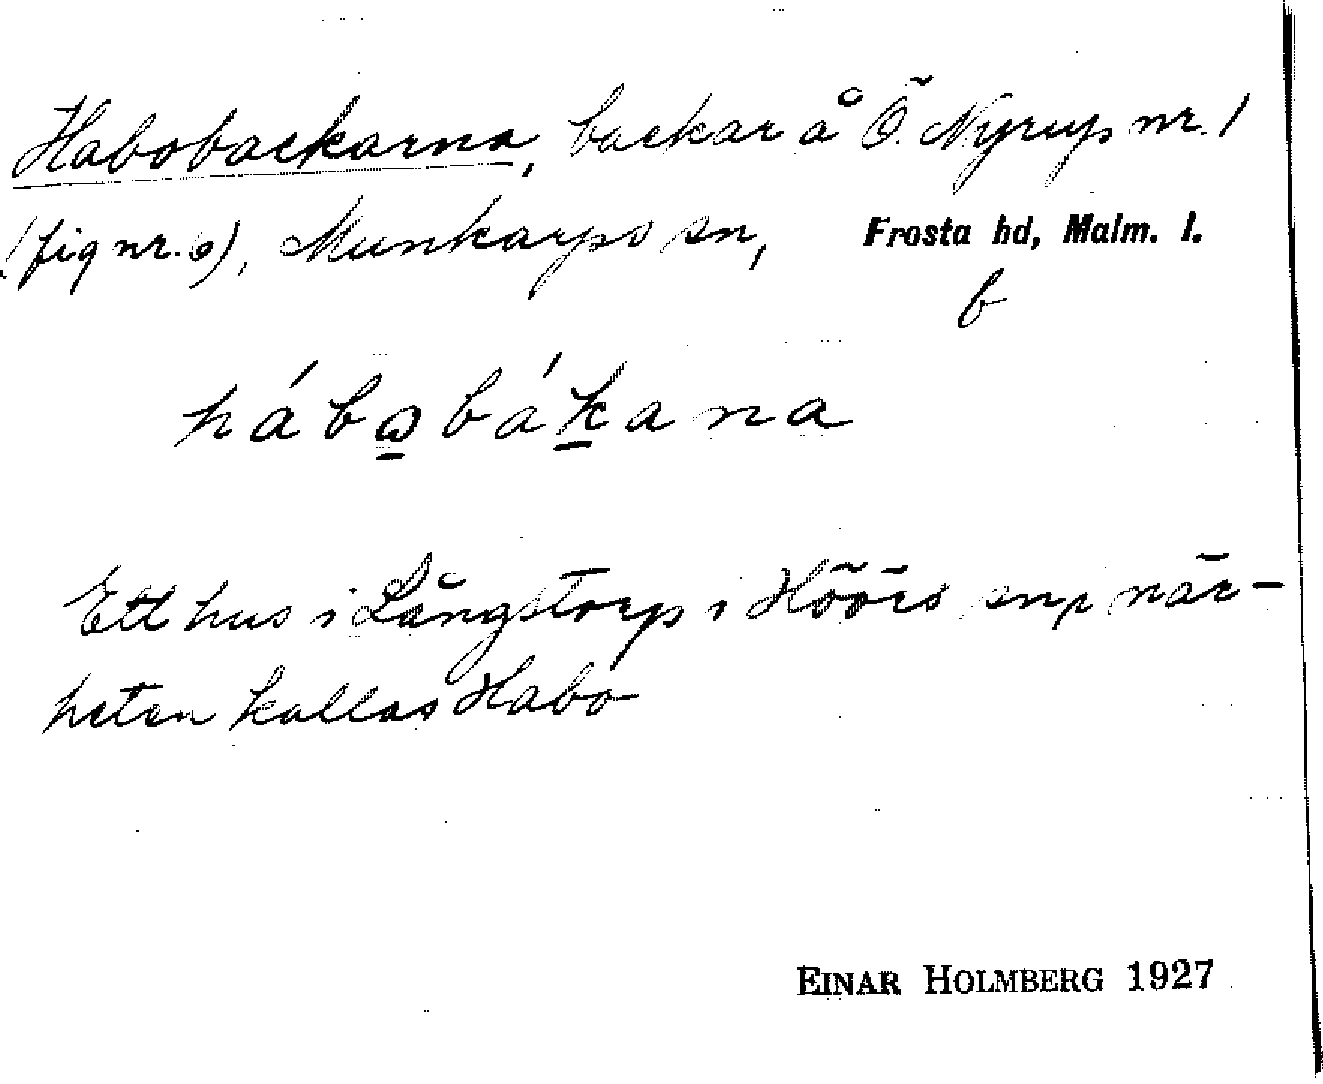 Habobackarna, backar å Ö. Nyrup nr. 1
(fig nr. 6), Munkarps sn, Frosta hd, Malm. l.
b
hábωbákana
Ett hus i Långstorp i Höörs sn, i när-
heten kallas Habo
EINAR HOLMBERG 1927